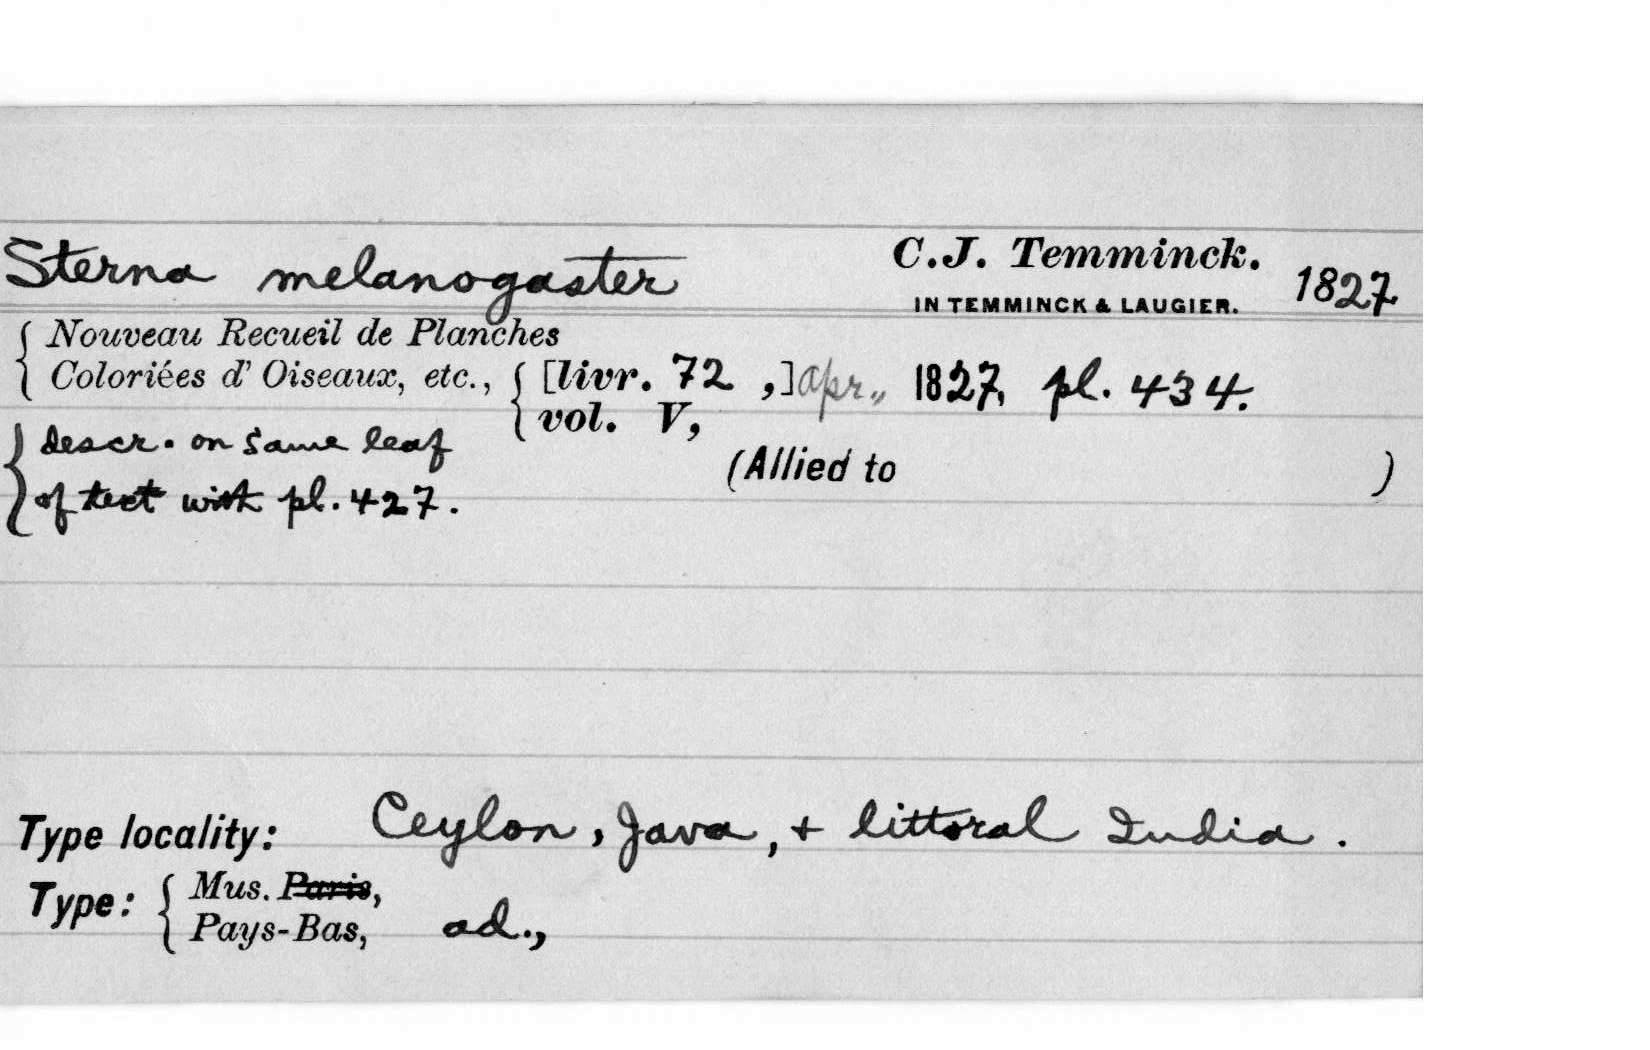 Sterna melanogaster C.J. Temminck. 1827.
IN TEMMINCK & LAUGIER.
{ Nouveau Recueil de Planches
Coloriées d' Oiseaux, etc., { [livr. 72 ,] apr., 1827, pl. 434.
vol. V,
{ descr. on same leaf
of text with pl. 427.
(Allied to )
Type locality: Ceylon, Java, + littoral India.
Type: { Mus. Paris,
Pays-Bas, ad.,